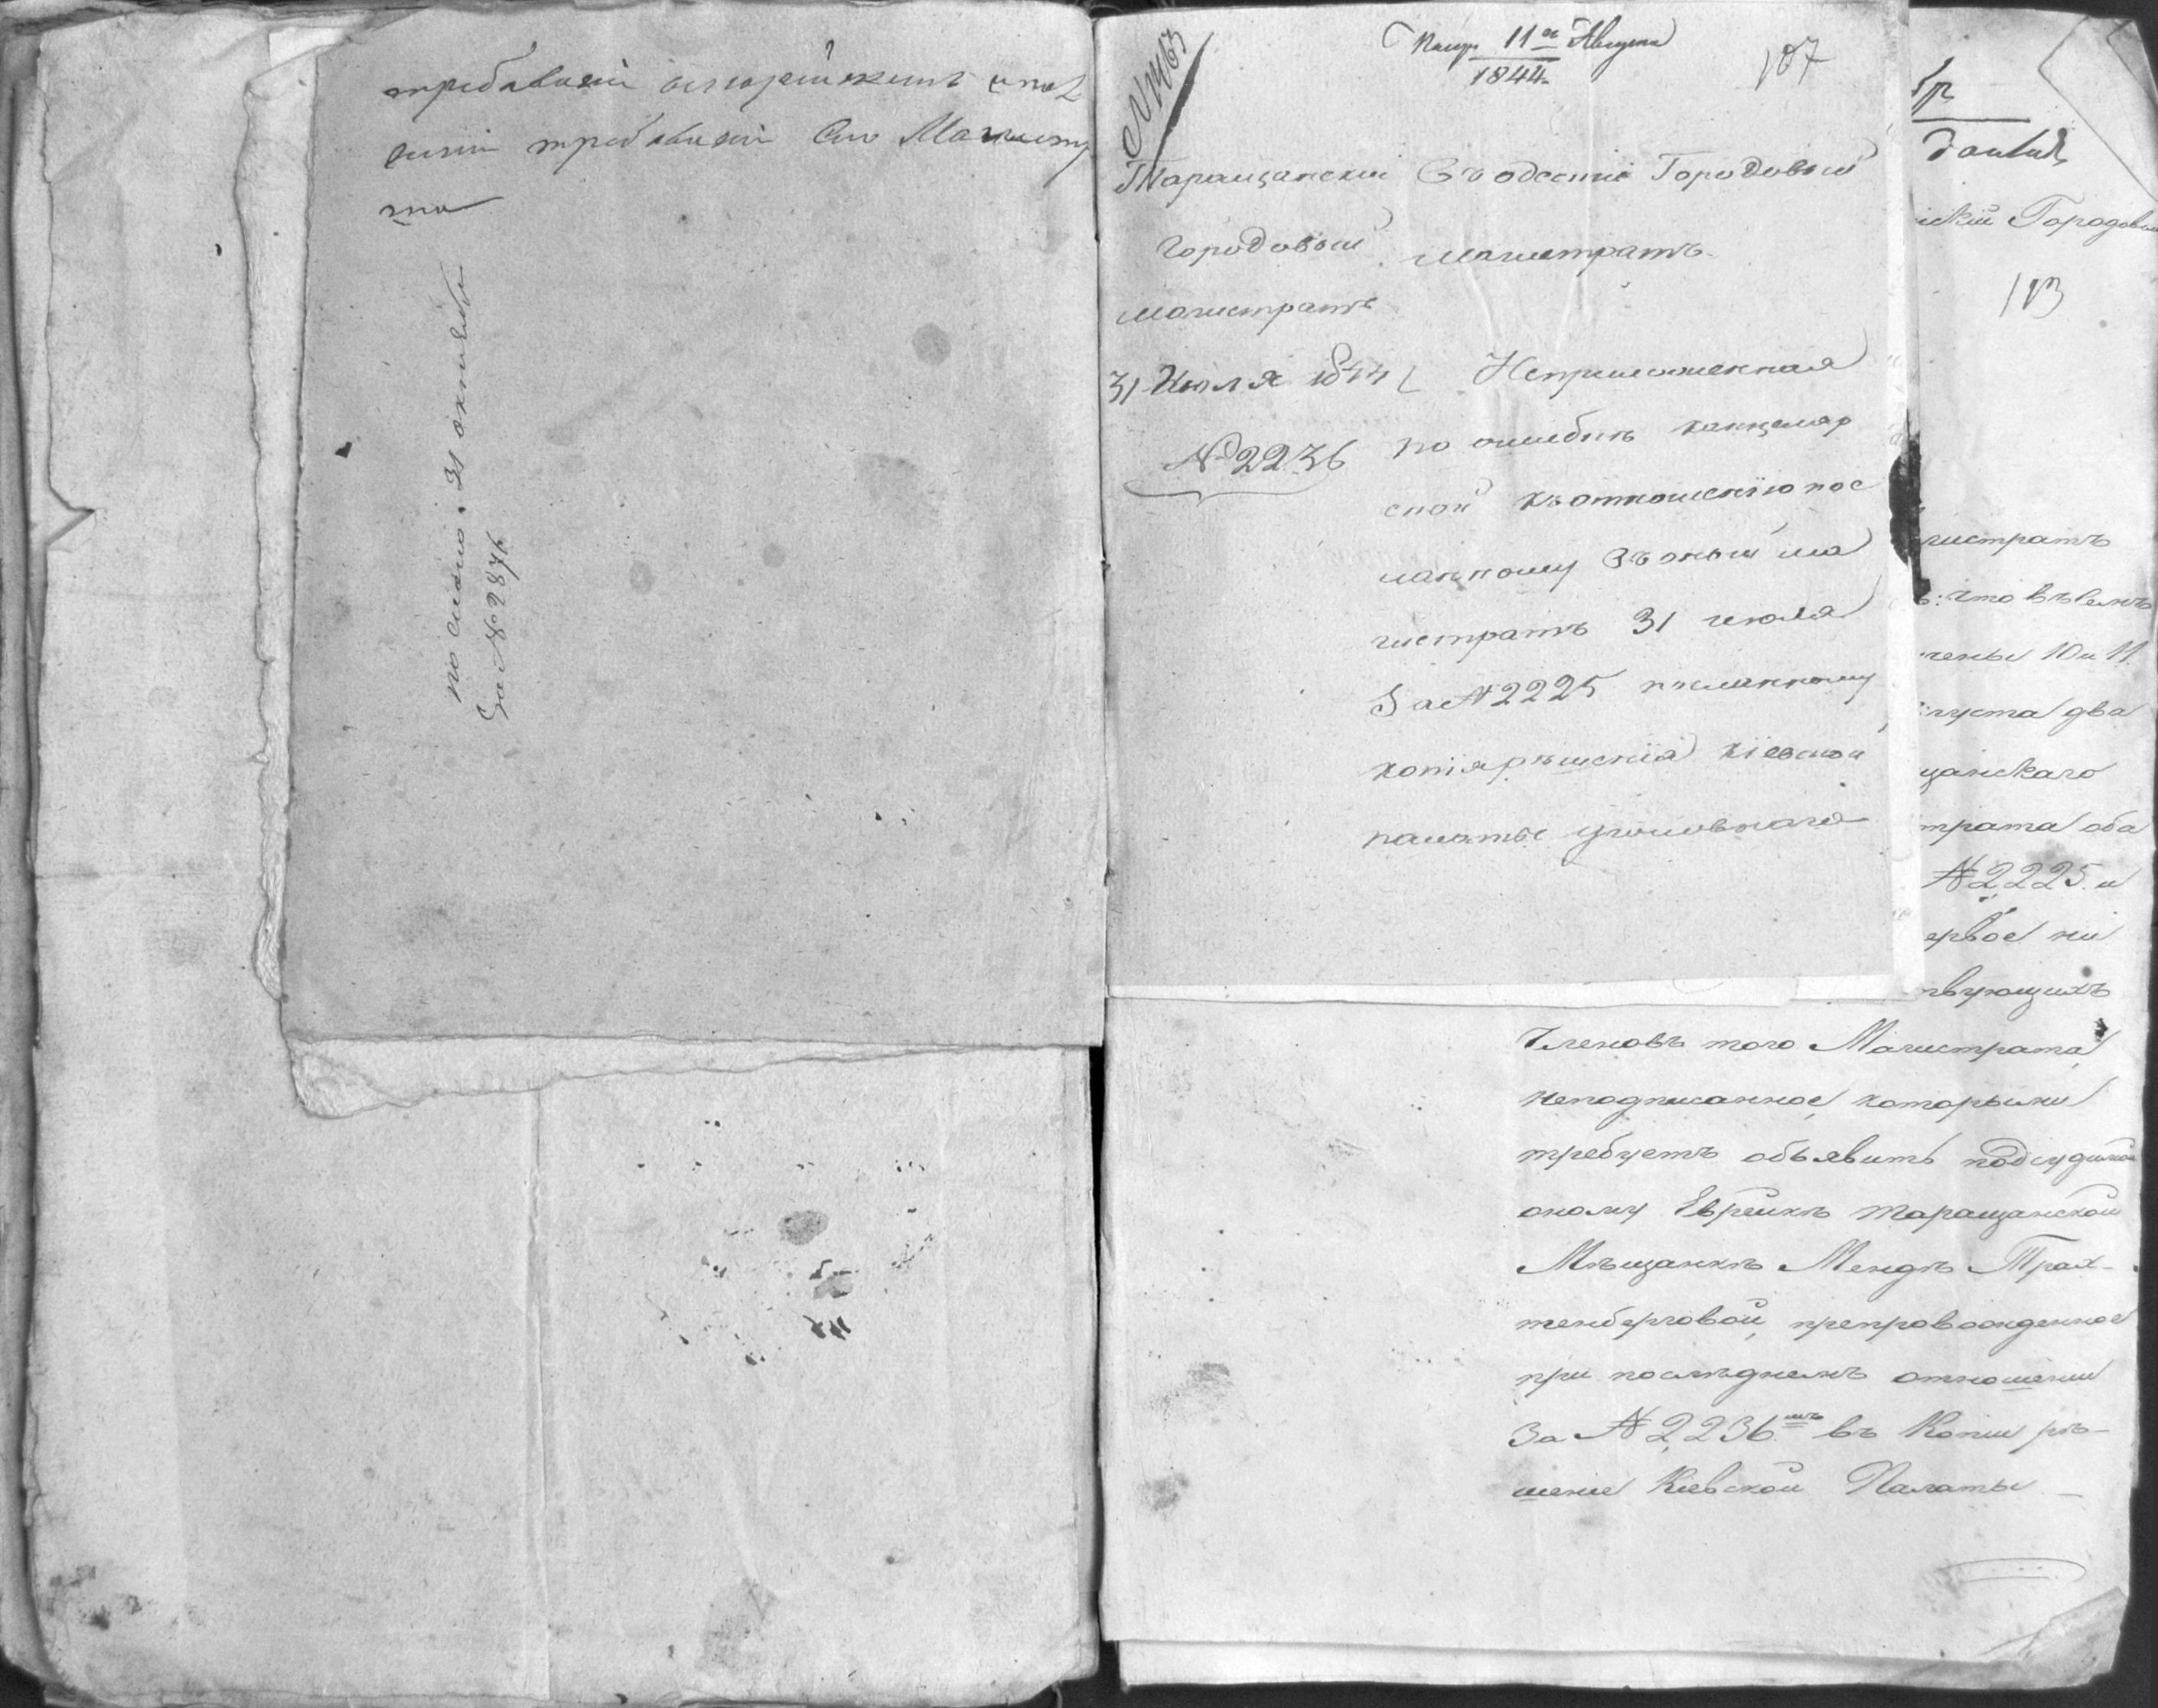 требованiй
требованiй Сего Магистра
та
по сему 31 октября
За № 2876
Получ. 11го Августа
1844.
107
Таращанскiй
Городовый
магистратъ
31 Июля 1844
№ 2236
Въ одесскiй Городовый
магистратъ.
Неприложенная
по ошибкѣ канцеляр
ской къ отношенiю пос
ланному въ оный ма
гистратъ 31 июля
За № 2225 посланному
копiя рѣшенiя кiевской
палаты уголовнаго
скiй Городовый
113
гистратъ
ъ: что въ немъ
чены 10 и 11
густа два
щанскаго
трата оба
№ 2225 и
ервое ни
твующихъ
Членовъ того Магистрата,
неподписанное, которыми
требуетъ объявить подсудимой
оному Еврейкѣ Таращанской
Мѣщанкѣ Мендѣ Трах-
тенберговой, препровожденное
при послѣднемъ отношении
За № 2236мъ въ Копии рѣ-
шение Кiевской Палаты